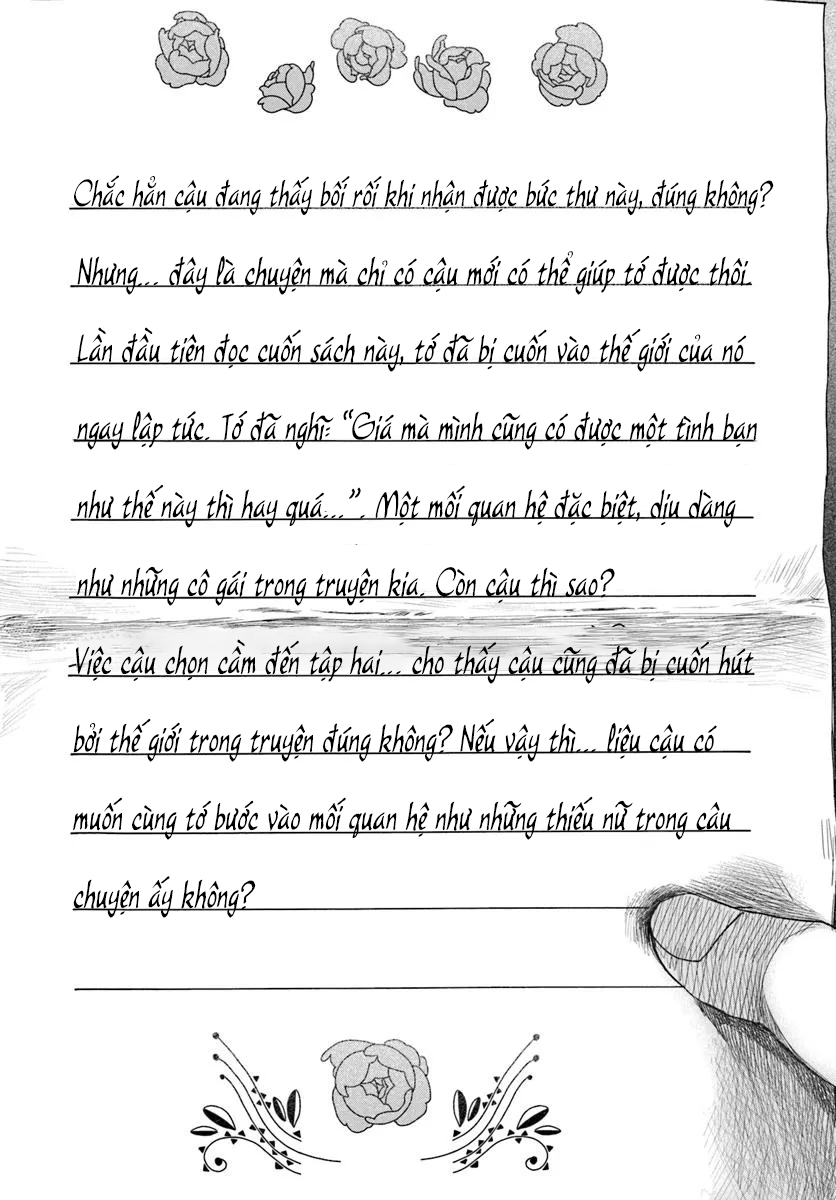 Chắc hẳn cậu đang thấy bối rối khi nhận được bức thư này, đúng không?
Nhưng... đây là chuyện mà chỉ có cậu mới có thể giúp tớ được thôi.
Lần đầu tiên đọc cuốn sách này, tớ đã bị cuốn vào thế giới của nó
ngay lập tức. Tớ đã nghĩ: “Giá mà mình cũng có được một tình bạn
như thế này thì hay quá...”. Một mối quan hệ đặc biệt, dịu dàng
như những cô gái trong truyện kia. Còn cậu thì sao?
Việc cậu chọn cầm đến tập hai... cho thấy cậu cũng đã bị cuốn hút
bởi thế giới trong truyện đúng không? Nếu vậy thì... liệu cậu có
muốn cùng tớ bước vào mối quan hệ như những thiếu nữ trong câu
chuyện ấy không?